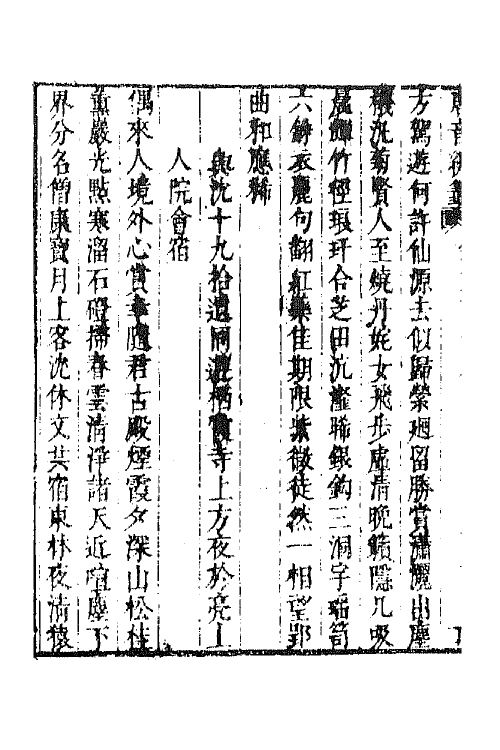 方駕遊何許仙源去似歸縈廻留勝賞瀟灑出塵
機泛菊賢人至燒丹姹女飛步虛清晚籟隱几吸
晨暉竹徑琅玕合芝田沆瀣晞銀鉤三洞字瑤笥
六銖衣麗句翻紅藥佳期限紫微徒然一相望郢
曲和應稀
與沈十九拾遺同遊栖霞寺上方夜於亮上
人院會宿
偶來人境外心賞幸隨君古殿煙霞夕深山松桂
薰巖光點寒溜石磴掃春雲清淨諸天近喧塵下
界分名僧康寶月上客沈休文共宿東林夜清猿